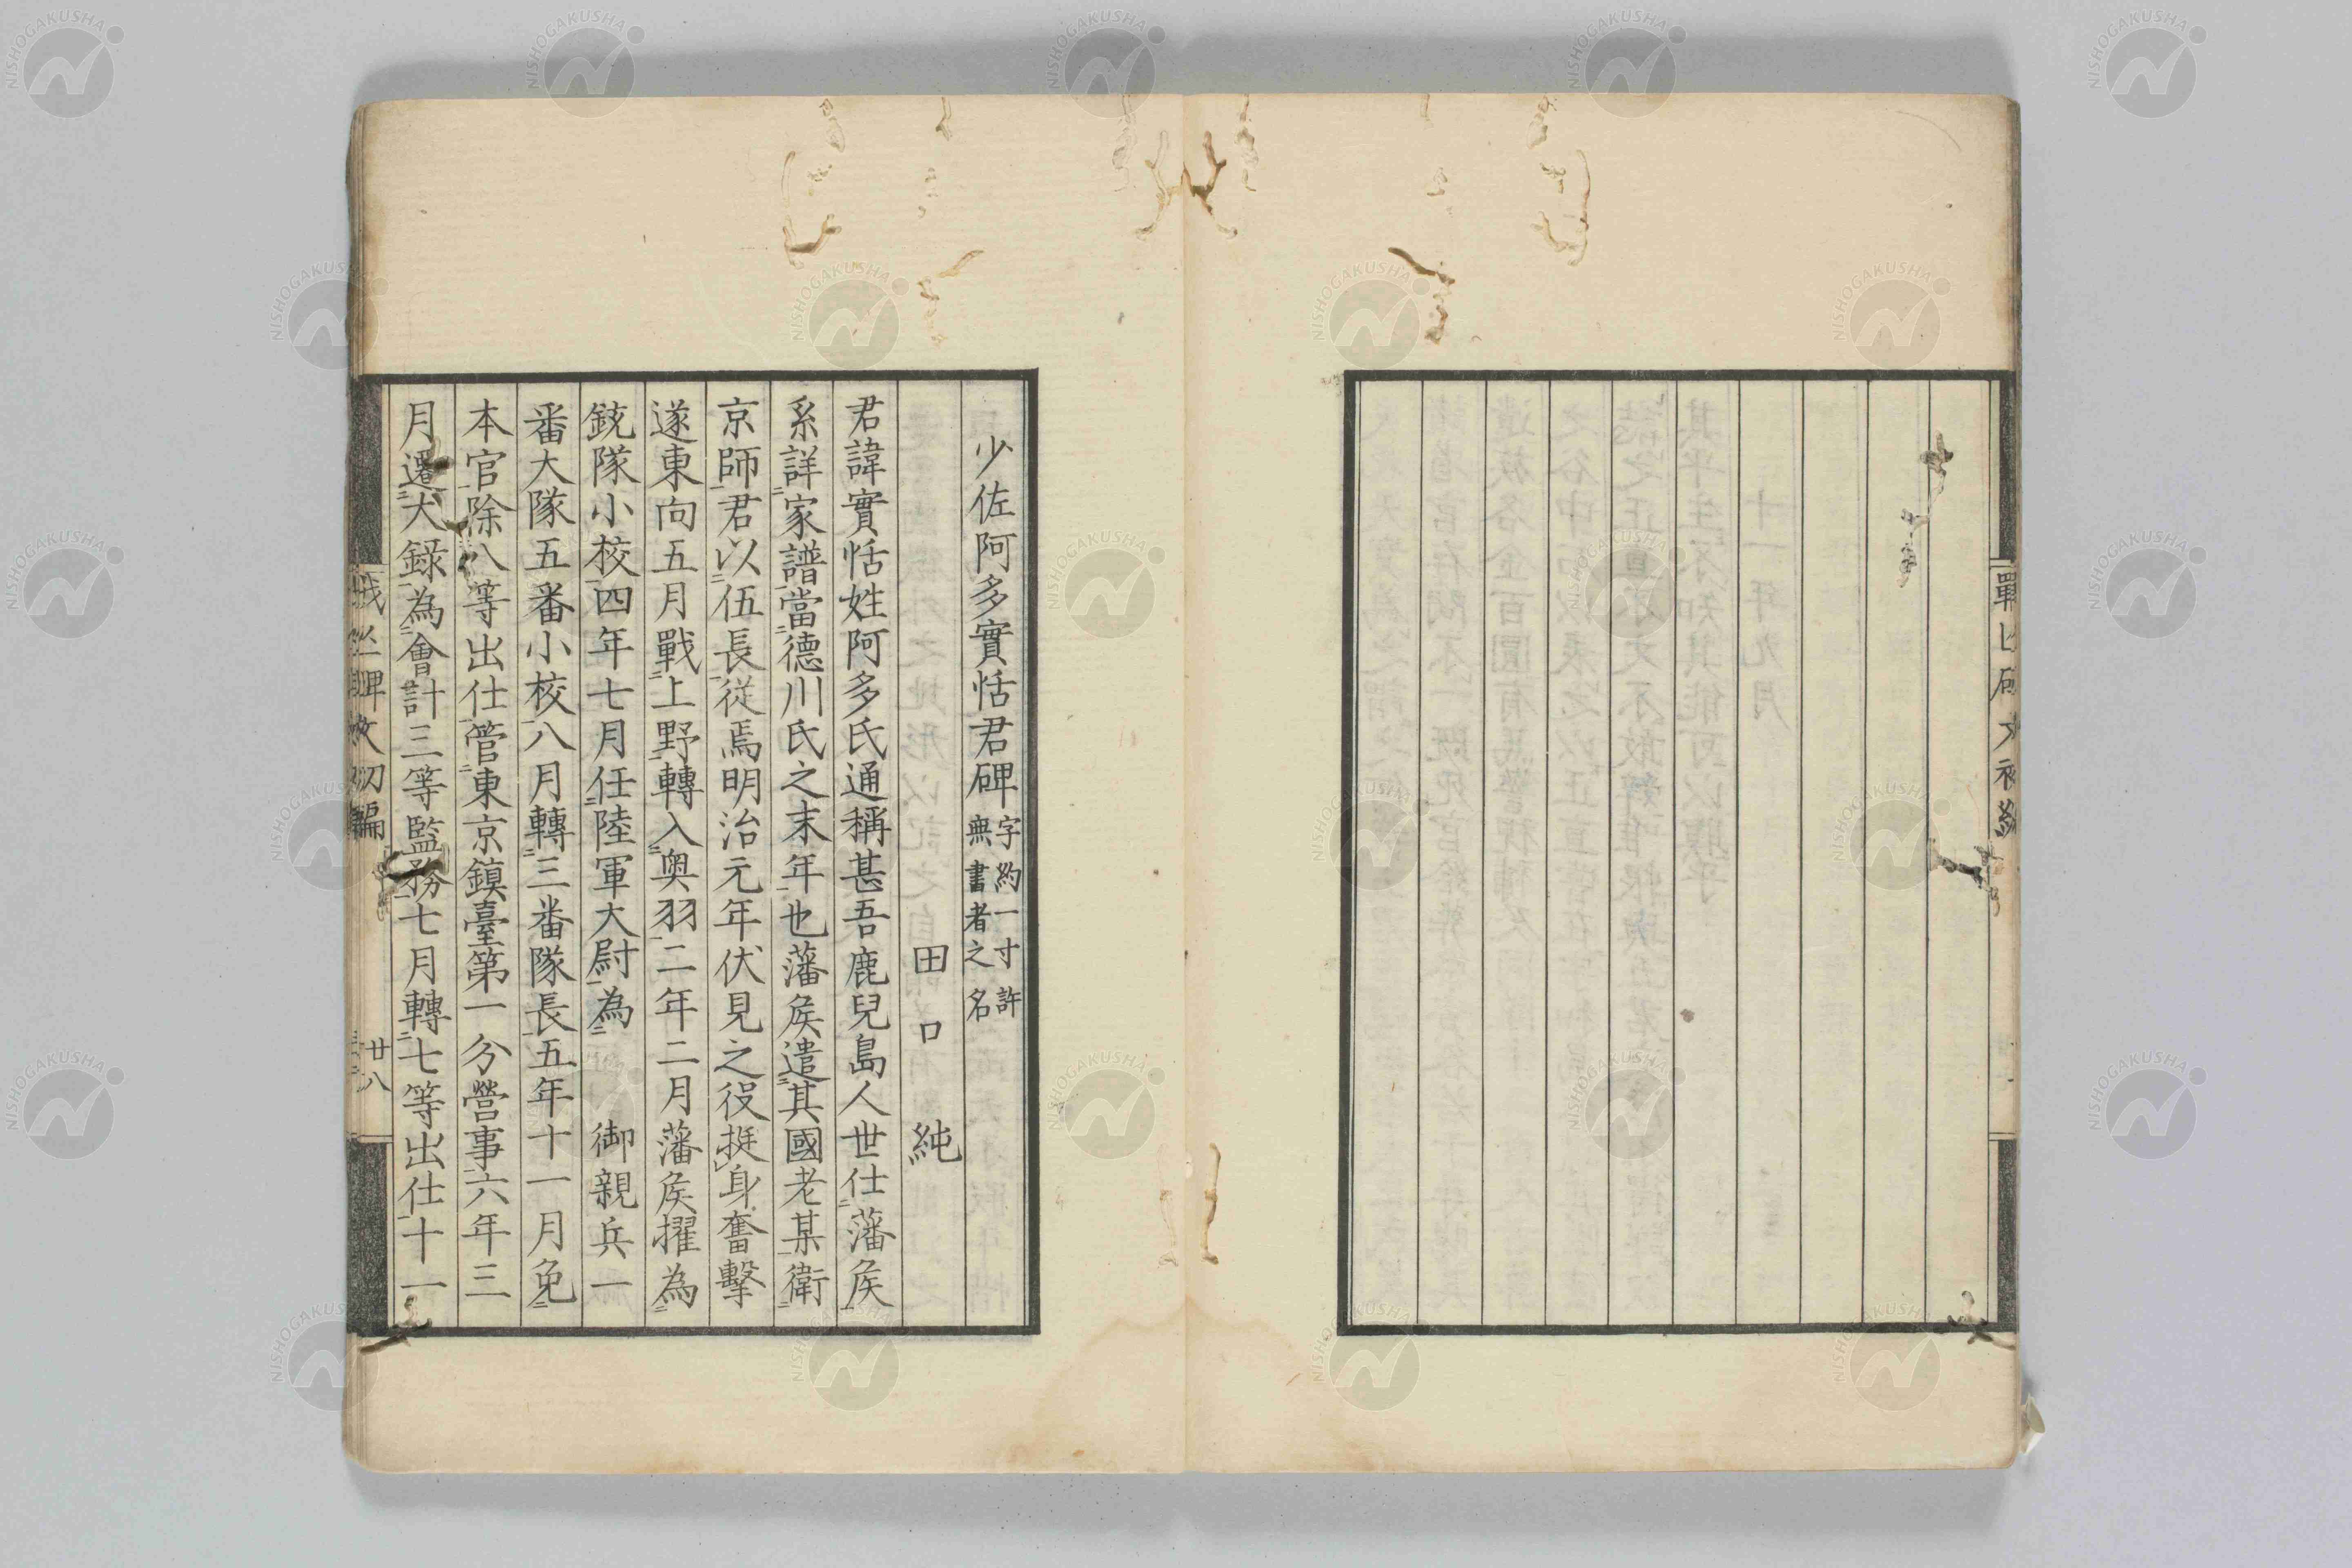 少佐阿多實恬君碑 字約一寸許 無書者之名
田口 純
君諱實恬姓阿多氏通稱甚吾鹿兒島人世仕藩矦
系詳家譜當德川氏之末年也藩矦遣其國老某衛
京師君以伍長從焉明治元年伏見之役挺身奮擊
遂東向五月戰上野轉入奥羽二年二月藩矦擢為
銃隊小校四年七月任陸軍大尉為 御親兵一
番大隊五番小校八月轉三番隊長五年十一月免
本官除八等出仕管東京鎮臺第一分營事六年三
月遷大錄為會計三等監務七月轉七等出仕十一
戰亾碑文初編
廿八
NISHOGAKUSHA